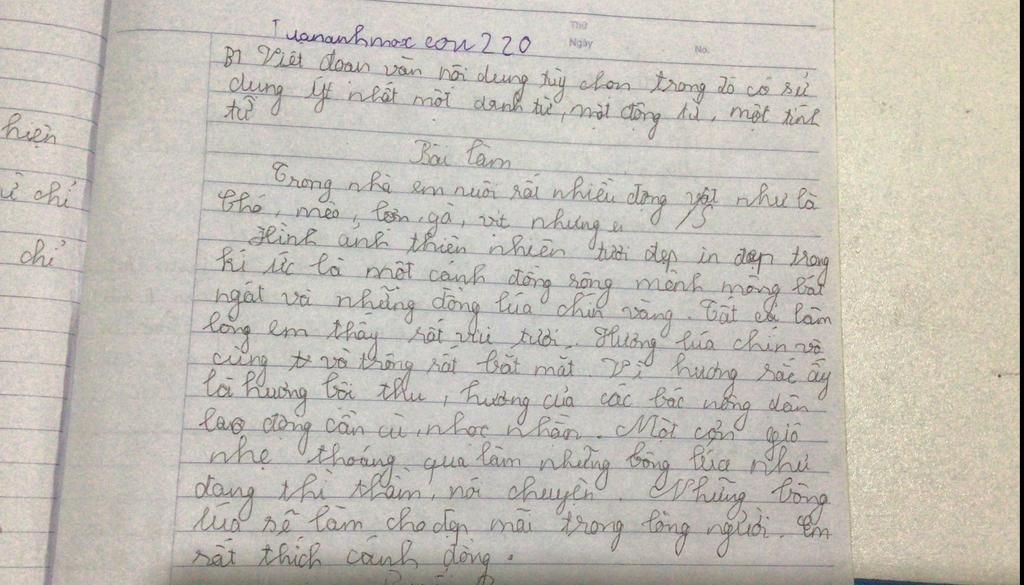 Tuananhmax cou 220
Thứ
Ngày
No.
B1 Viết đoan văn nôi dung tùy chon trong đó có sử
dung ít nhất một danh từ, một động từ, một tính
từ
Bài làm
Trong nhà em nuôi rất nhiều động vật như là
thỏ, mèo, lợn, gà, vit nhưng
Hình ảnh thiên nhiên tươi đẹp in đậm trong
kí ức là một cánh đồng rông mênh mông bát
ngát và những đồng lúa chín vàng. Tất cả làm
lòng em thấy rất vui tươi. Hương lúa chín vô
cùng và trông rất bắt mắt. Vì hương sắc ấy
là hương trời thu, hương của các bác nông dân
lao động cần cù, nhoc nhằn. Một cơn gió
nhẹ thoáng qua làm những bông lúa như
đang thì thầm, nói chuyên. Những bông
lúa sẽ làm cho đẹp mãi trong lòng người. Em
rất thích cánh đồng.
hiện
chỉ
chỉ